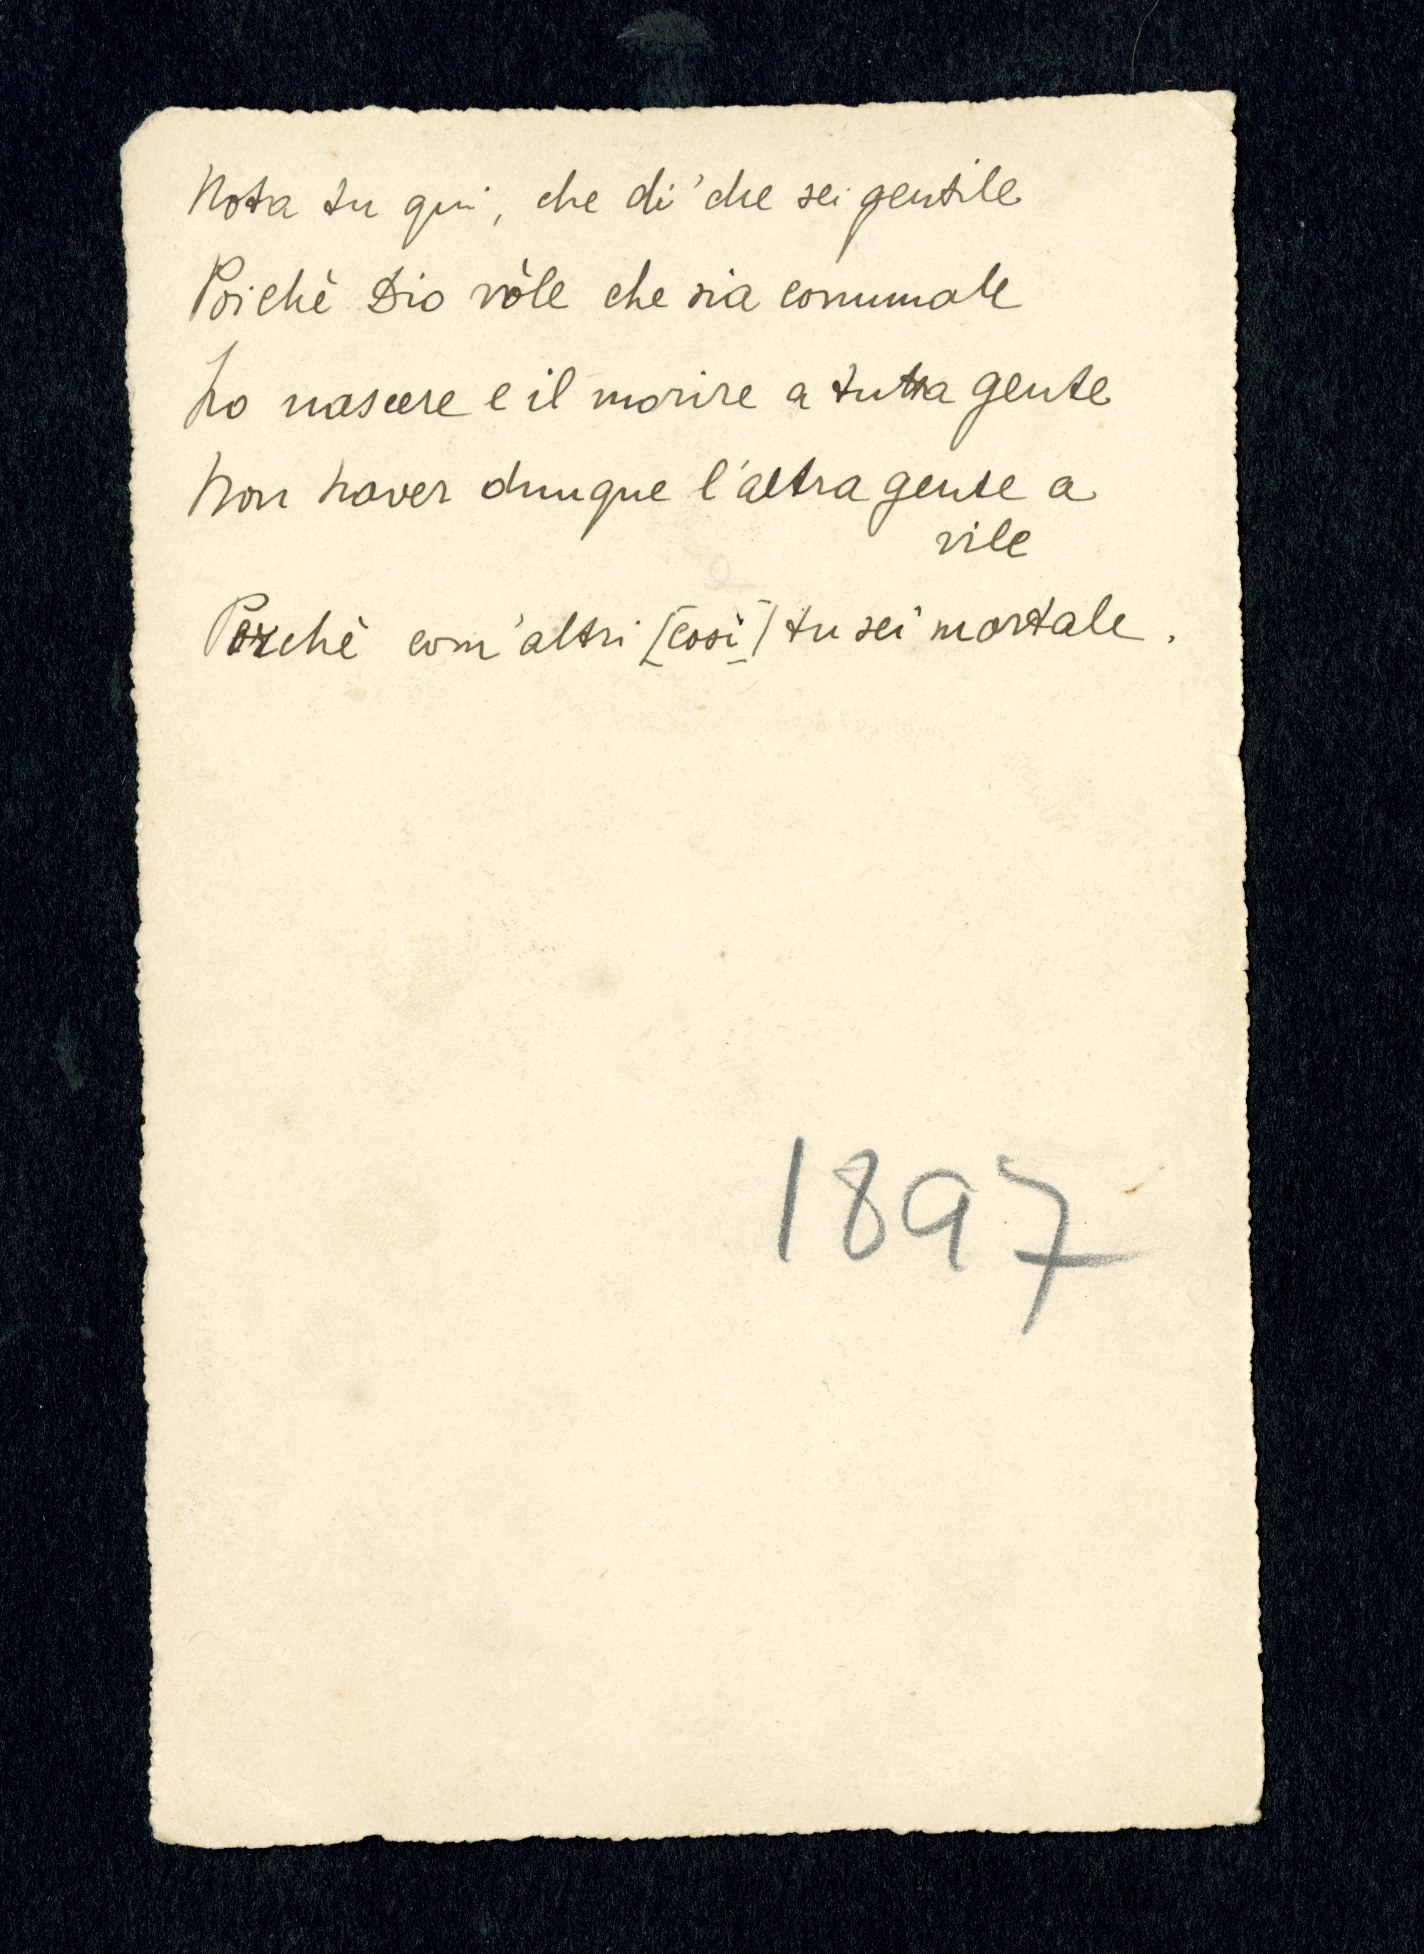 Nota tu qui, che di' che sei gentile
Poichè Dio vòle che sia comunale
Lo nascere e il morire a tutta gente
Non haver dunque l'altra gente a
vile
Perchè com'altri [così] tu sei mortale.
1897